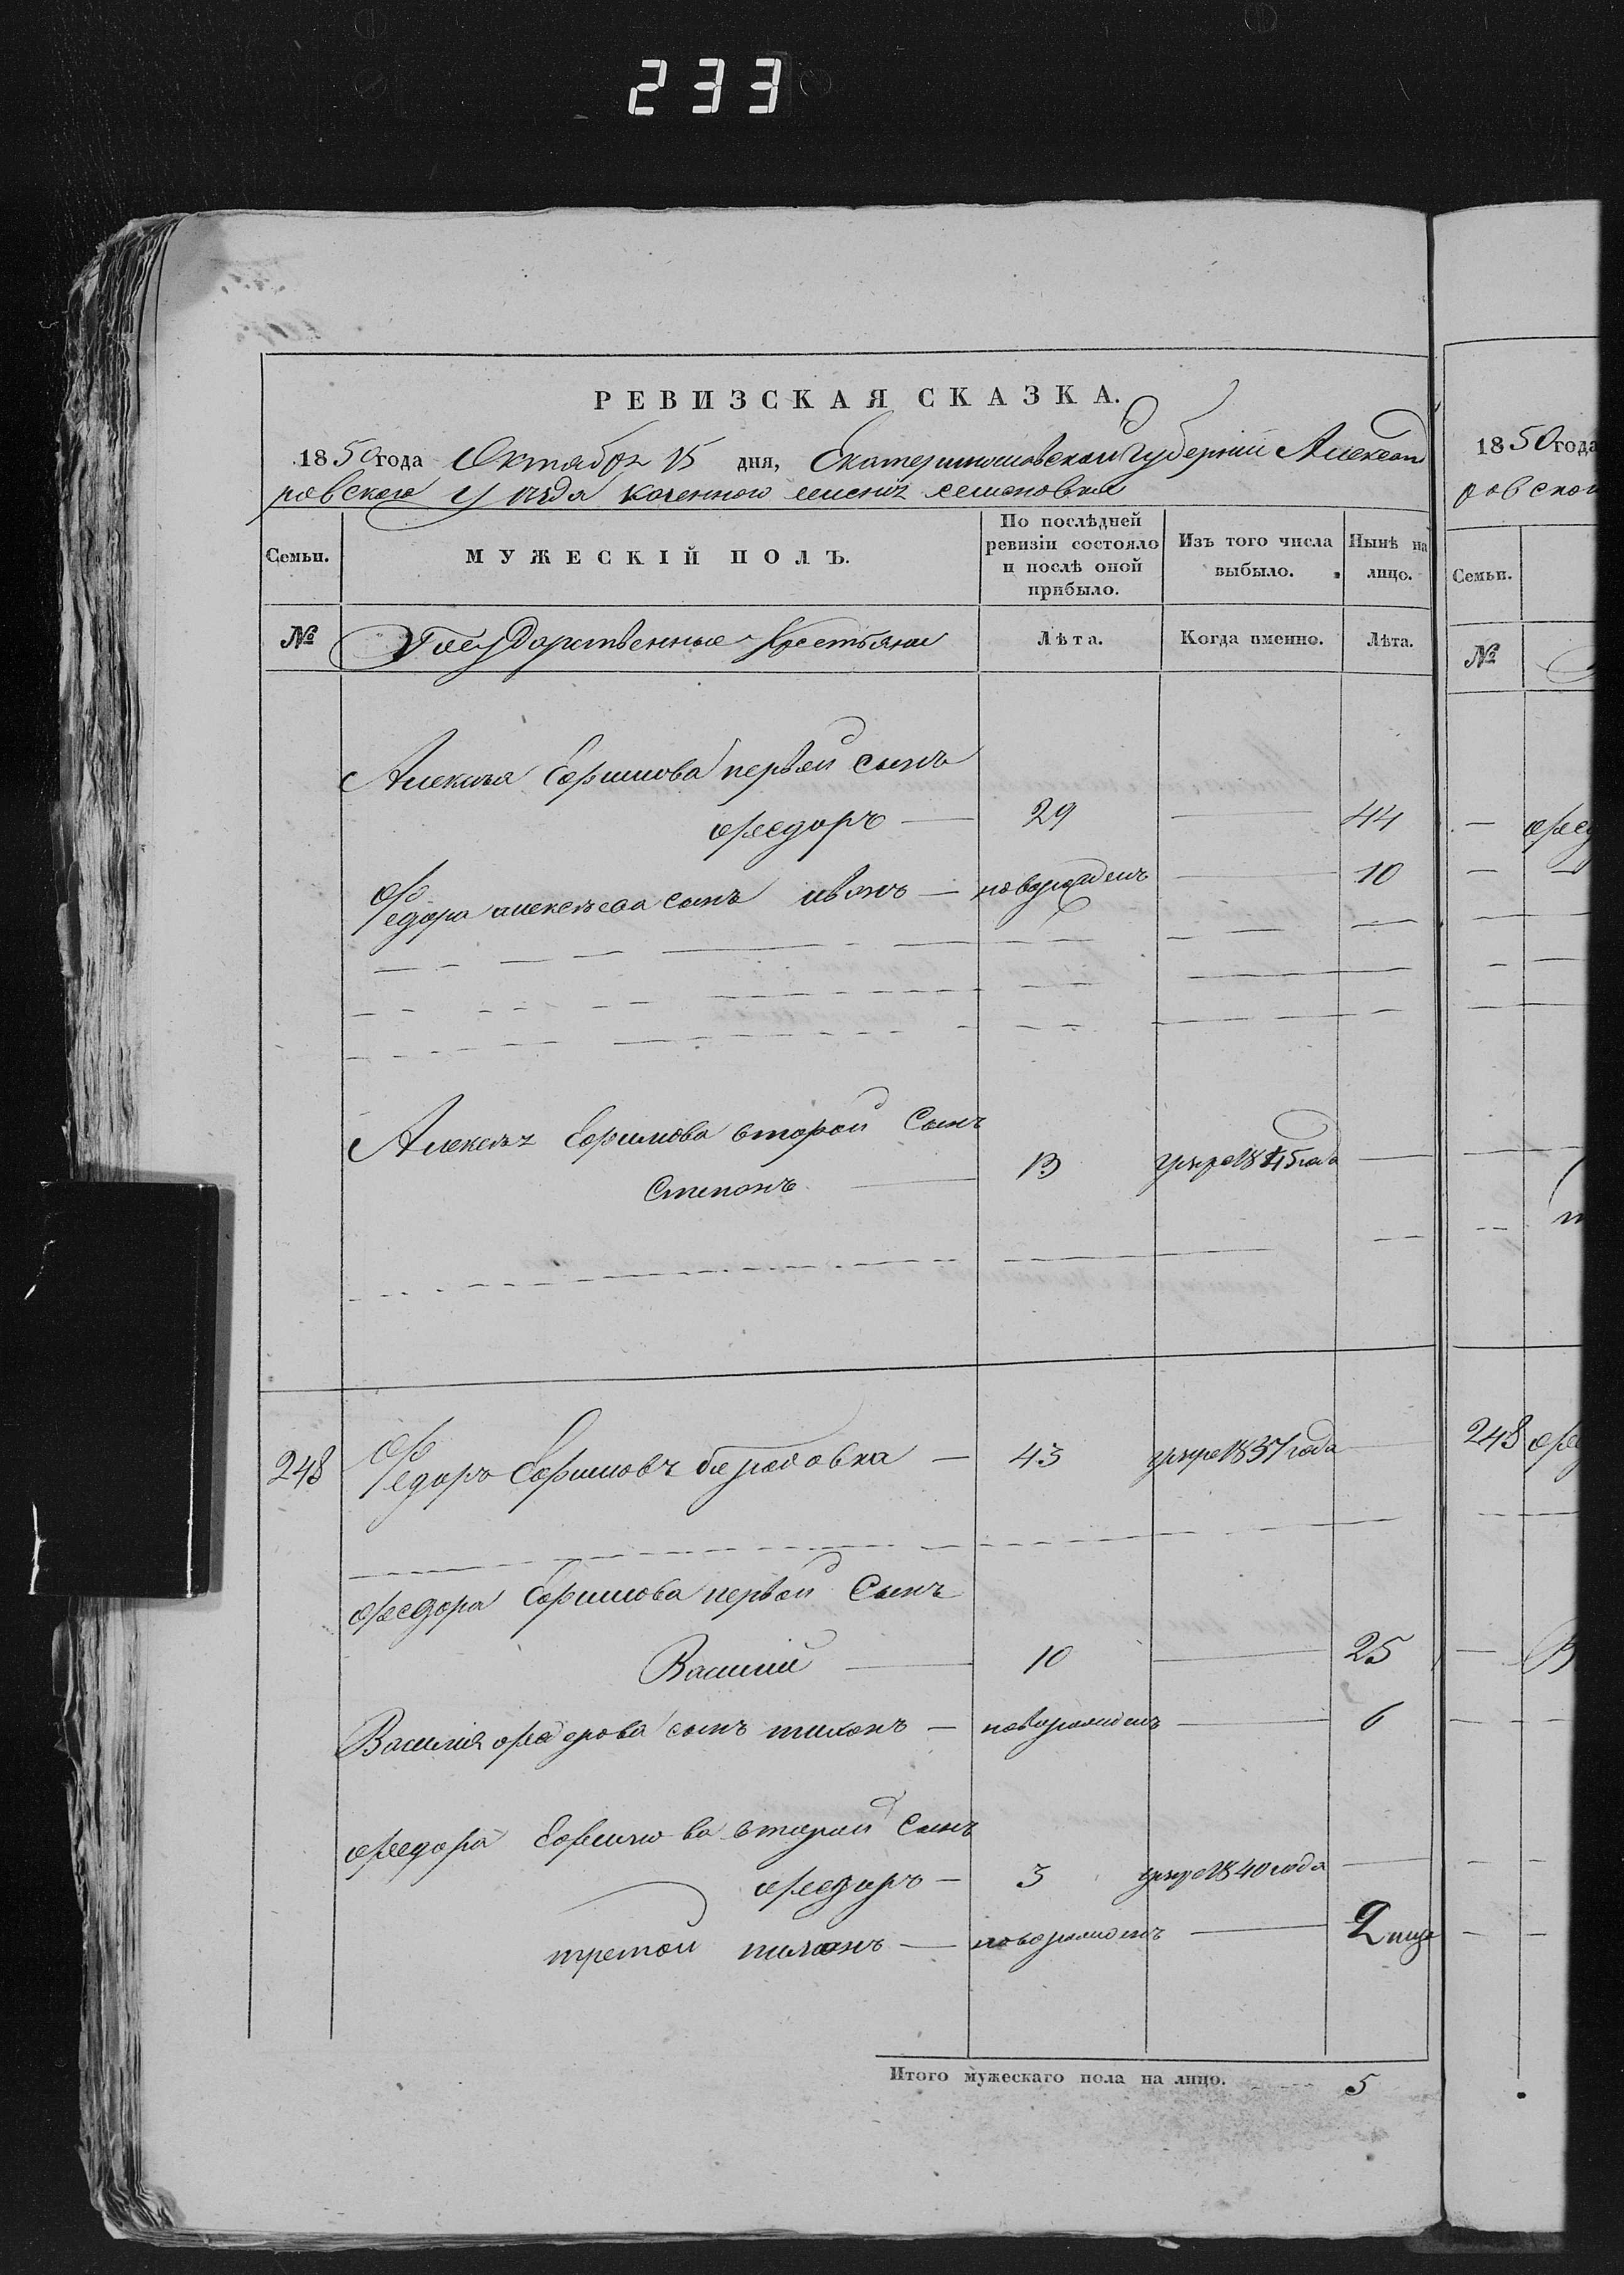 233
РЕВИЗСКАЯ СКАЗКА.
1850 года Октября 15 дня, Екатеринославской Губерніи Александ
ровского Уѣзда казенного селенія семеновки
Семьи.
МУЖЕСКІЙ ПОЛЪ.
По послѣдней ревизіи состояло и послѣ оной прибыло.
Изъ того числа выбыло.
Нынѣ на лицо.
№ Государственные Крестьяне Лѣта. Когда именно. Лѣта.
Алексѣя Ефимова первой сынъ
Федоръ — 29 — 44
Федора алексѣева сынъ иванъ — новорожденъ — 10
Алексѣя Ефимова второй Сынъ
Степанъ — 13 умре 1845 года —
248 Федоръ Ефимовъ — 43 умре 1837 года
Федора Ефимова первой Сынъ
Василій — 10 — 25
Василія федорова сынъ тихонъ — новорожденъ — 6
Федора Ефимова второй Сынъ
Федоръ — 3 умре 1840 года —
третой — новорожденъ —
Итого мужескаго пола на лицо. 5
1850 года
ровског
Семьи.
№
Фед
248 Фед
В